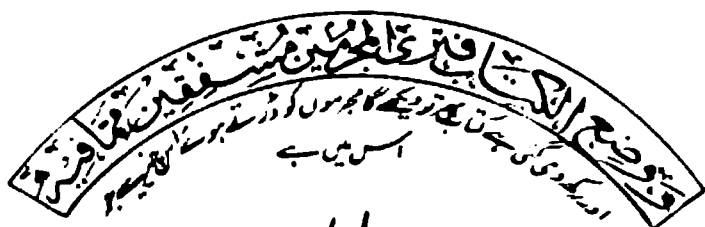 ووضع الكتاب فترى المجرمين مشفقين مما فيه
اور رکھ دی گئی ہے کتاب پھر تو دیکھے گا مجرموں کو ڈرتے ہوئے اس چیز سے جو
اس میں ہے